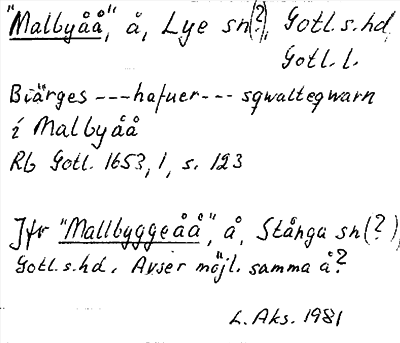 "Malbyåå", å, Lye sn(?), Gotl.s.hd,
Gotl. l.
Biärges ---hafuer--- sqwalteqwarn
i Malbyåå
Rb Gotl. 1653, 1, s. 123
Jfr "Mallbyggeåå", å, Stånga sn(?),
Gotl.s.hd. Avser möjl. samma å?
L. Aks. 1981